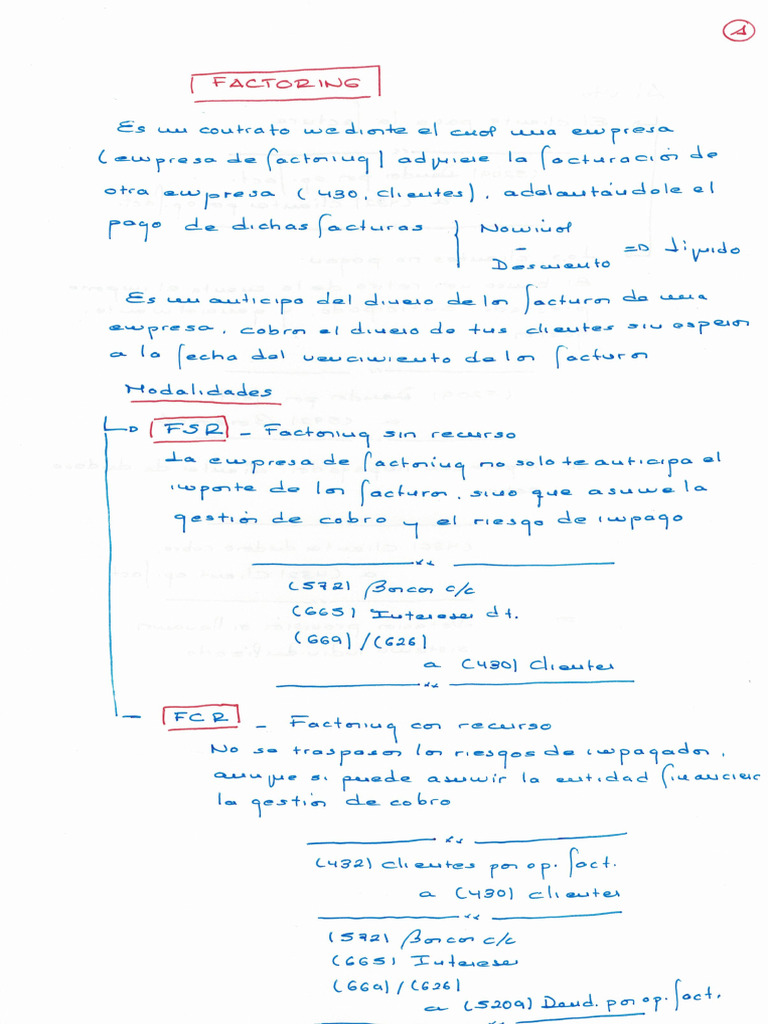 1
FACTORING
Es un contrato mediante el cual una empresa
(empresa de factoring) adquiere la facturación de
otra empresa (430, clientes), adelantándole el
pago de dichas facturas } Nominal
- => Líquido
Descuento
Es un anticipo del dinero de las facturas de una
empresa, cobras el dinero de tus clientes sin esperar
a la fecha del vencimiento de las facturas
Modalidades
FSR - Factoring sin recurso
La empresa de factoring no solo te anticipa el
importe de las facturas, sino que asume la
gestión de cobro y el riesgo de impago
(572) Bancos c/c
(665) Intereses dt.
(669)/(626)
a (430) Clientes
FCR - Factoring con recurso
No se traspasan los riesgos de impagados,
aunque si puede asumir la entidad financier
la gestión de cobro
(432) Clientes por op. fact.
a (430) clientes
(572) Bancos c/c
(665) Intereses
(669)/(626)
a (5209) Deud. por op. fact.